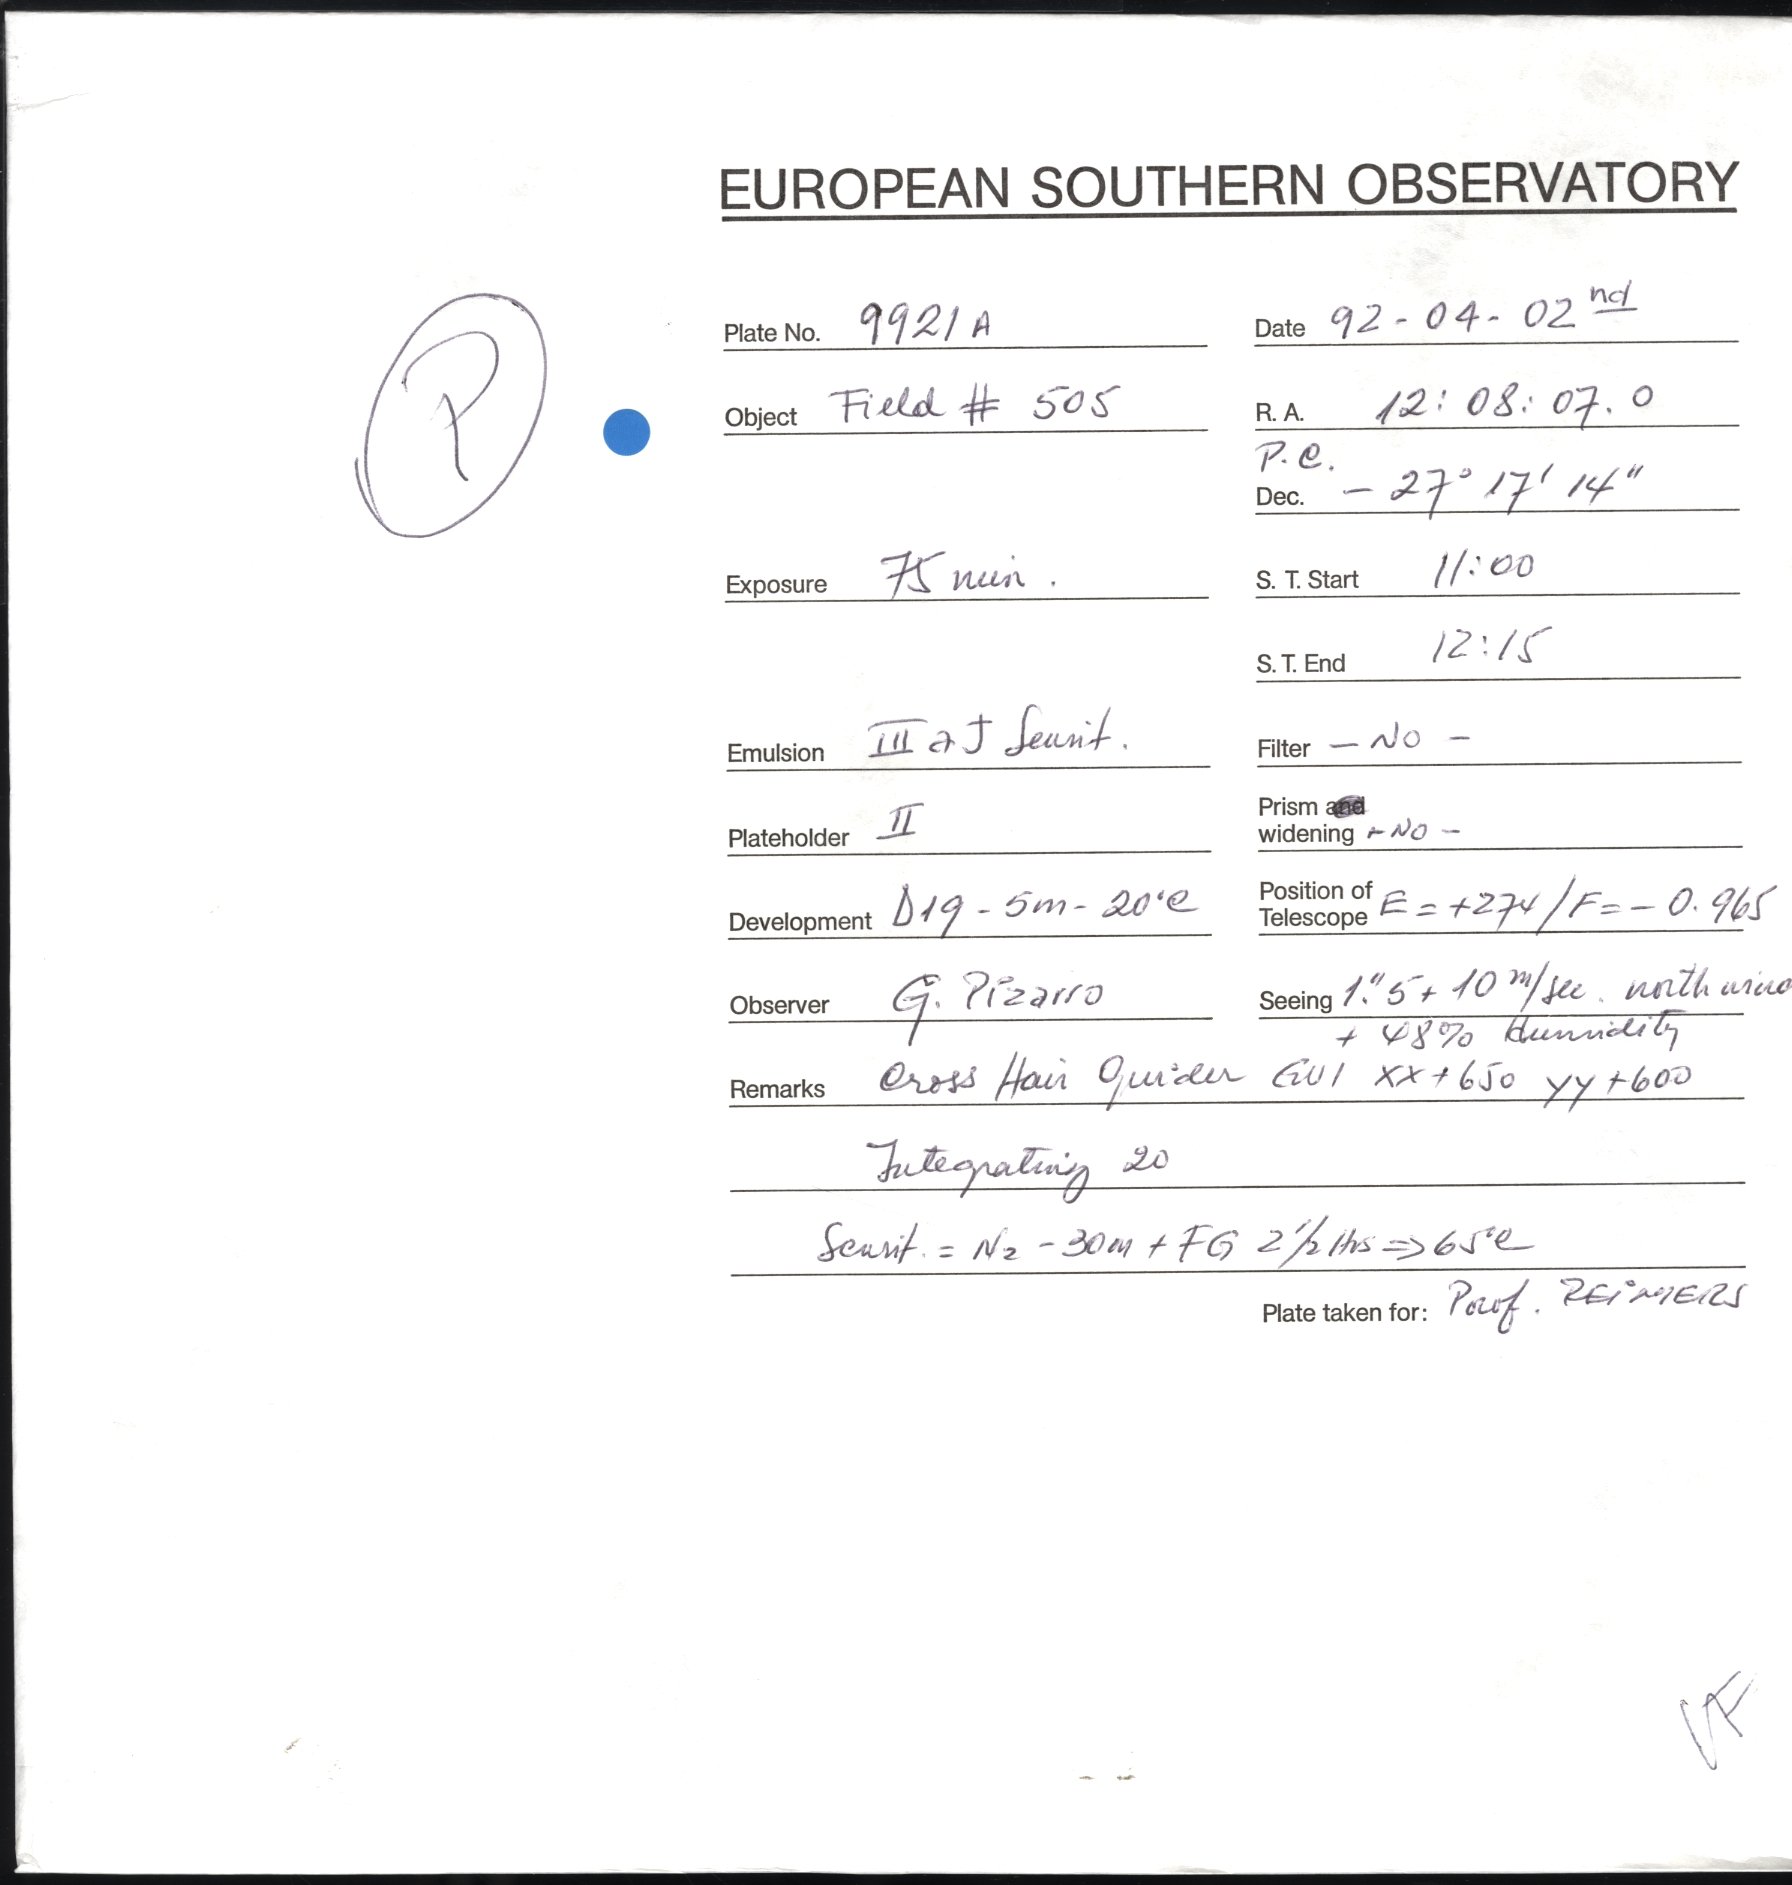 EUROPEAN SOUTHERN OBSERVATORY
P
Plate No. 9921 A
Date 92-04-02nd
Object Field # 505
R. A. 12:08:07.0
P.C.
Dec. - 27° 17' 14"
Exposure 75 min.
S. T. Start 11:00
S. T. End 12:15
Emulsion III a J Sensit.
Filter - No -
Plateholder II
Prism and
widening - No -
Development D19 - 5m - 20°C
Position of
Telescope E = +274 / F = - 0.965
Observer G. Pizarro
Seeing 1."5 + 10 m/sec. north wind
+ 48% Humidity
Remarks Cross Hair Guider GU1 XX+650 YY+600
Integrating 20
Sensit. = N2 - 30m + FG 2 1/2 Hrs => 65°C
Plate taken for: Prof. REIMERS
VF